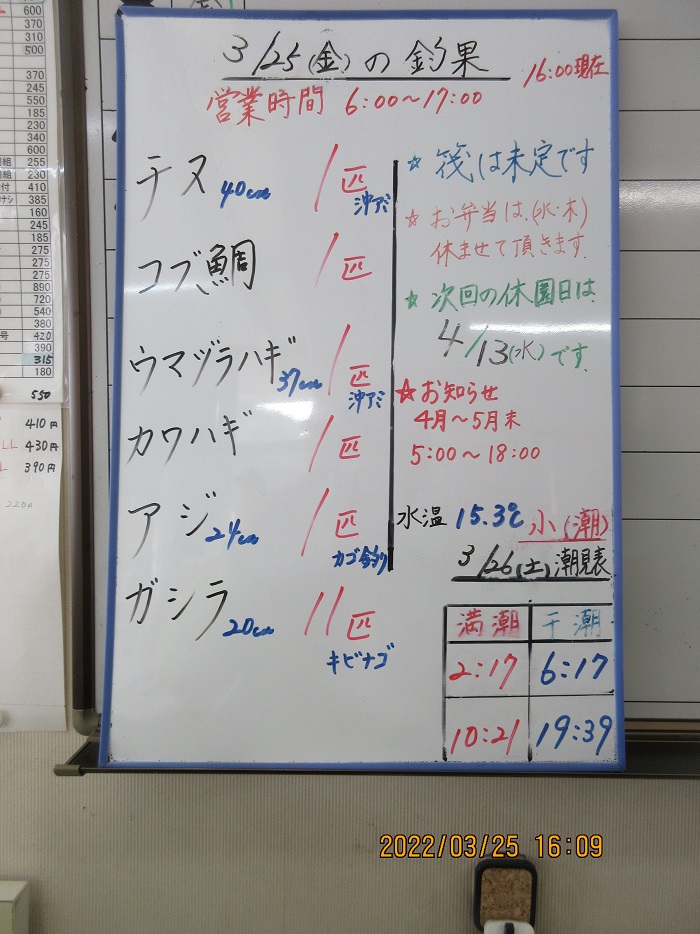 3/25(金)の釣果
16:00現在
営業時間 6:00〜17:00
チヌ 40cm 1匹 沖アミ
コブ鯛 1匹
ウマヅラハギ 37cm 1匹 沖アミ
カワハギ 1匹
アジ 24cm 1匹 カゴ釣り
ガシラ 20cm 11匹 キビナゴ
☆ 筏は未定です
☆ お弁当は、(水・木)
休ませて頂きます。
☆ 次回の休園日は、
4/13(水)です。
☆お知らせ
4月〜5月末
5:00〜18:00
水温 15.3℃ 小(潮)
3/26(土)潮見表
満潮 干潮
2:17 6:17
10:21 19:39
600
370
310
500
370
245
550
185
230
340
600
255
230
410
385
160
245
185
275
275
890
720
540
380
420
390
315
180
550
410円
LL 430円
L 390円
2022/03/25 16:09